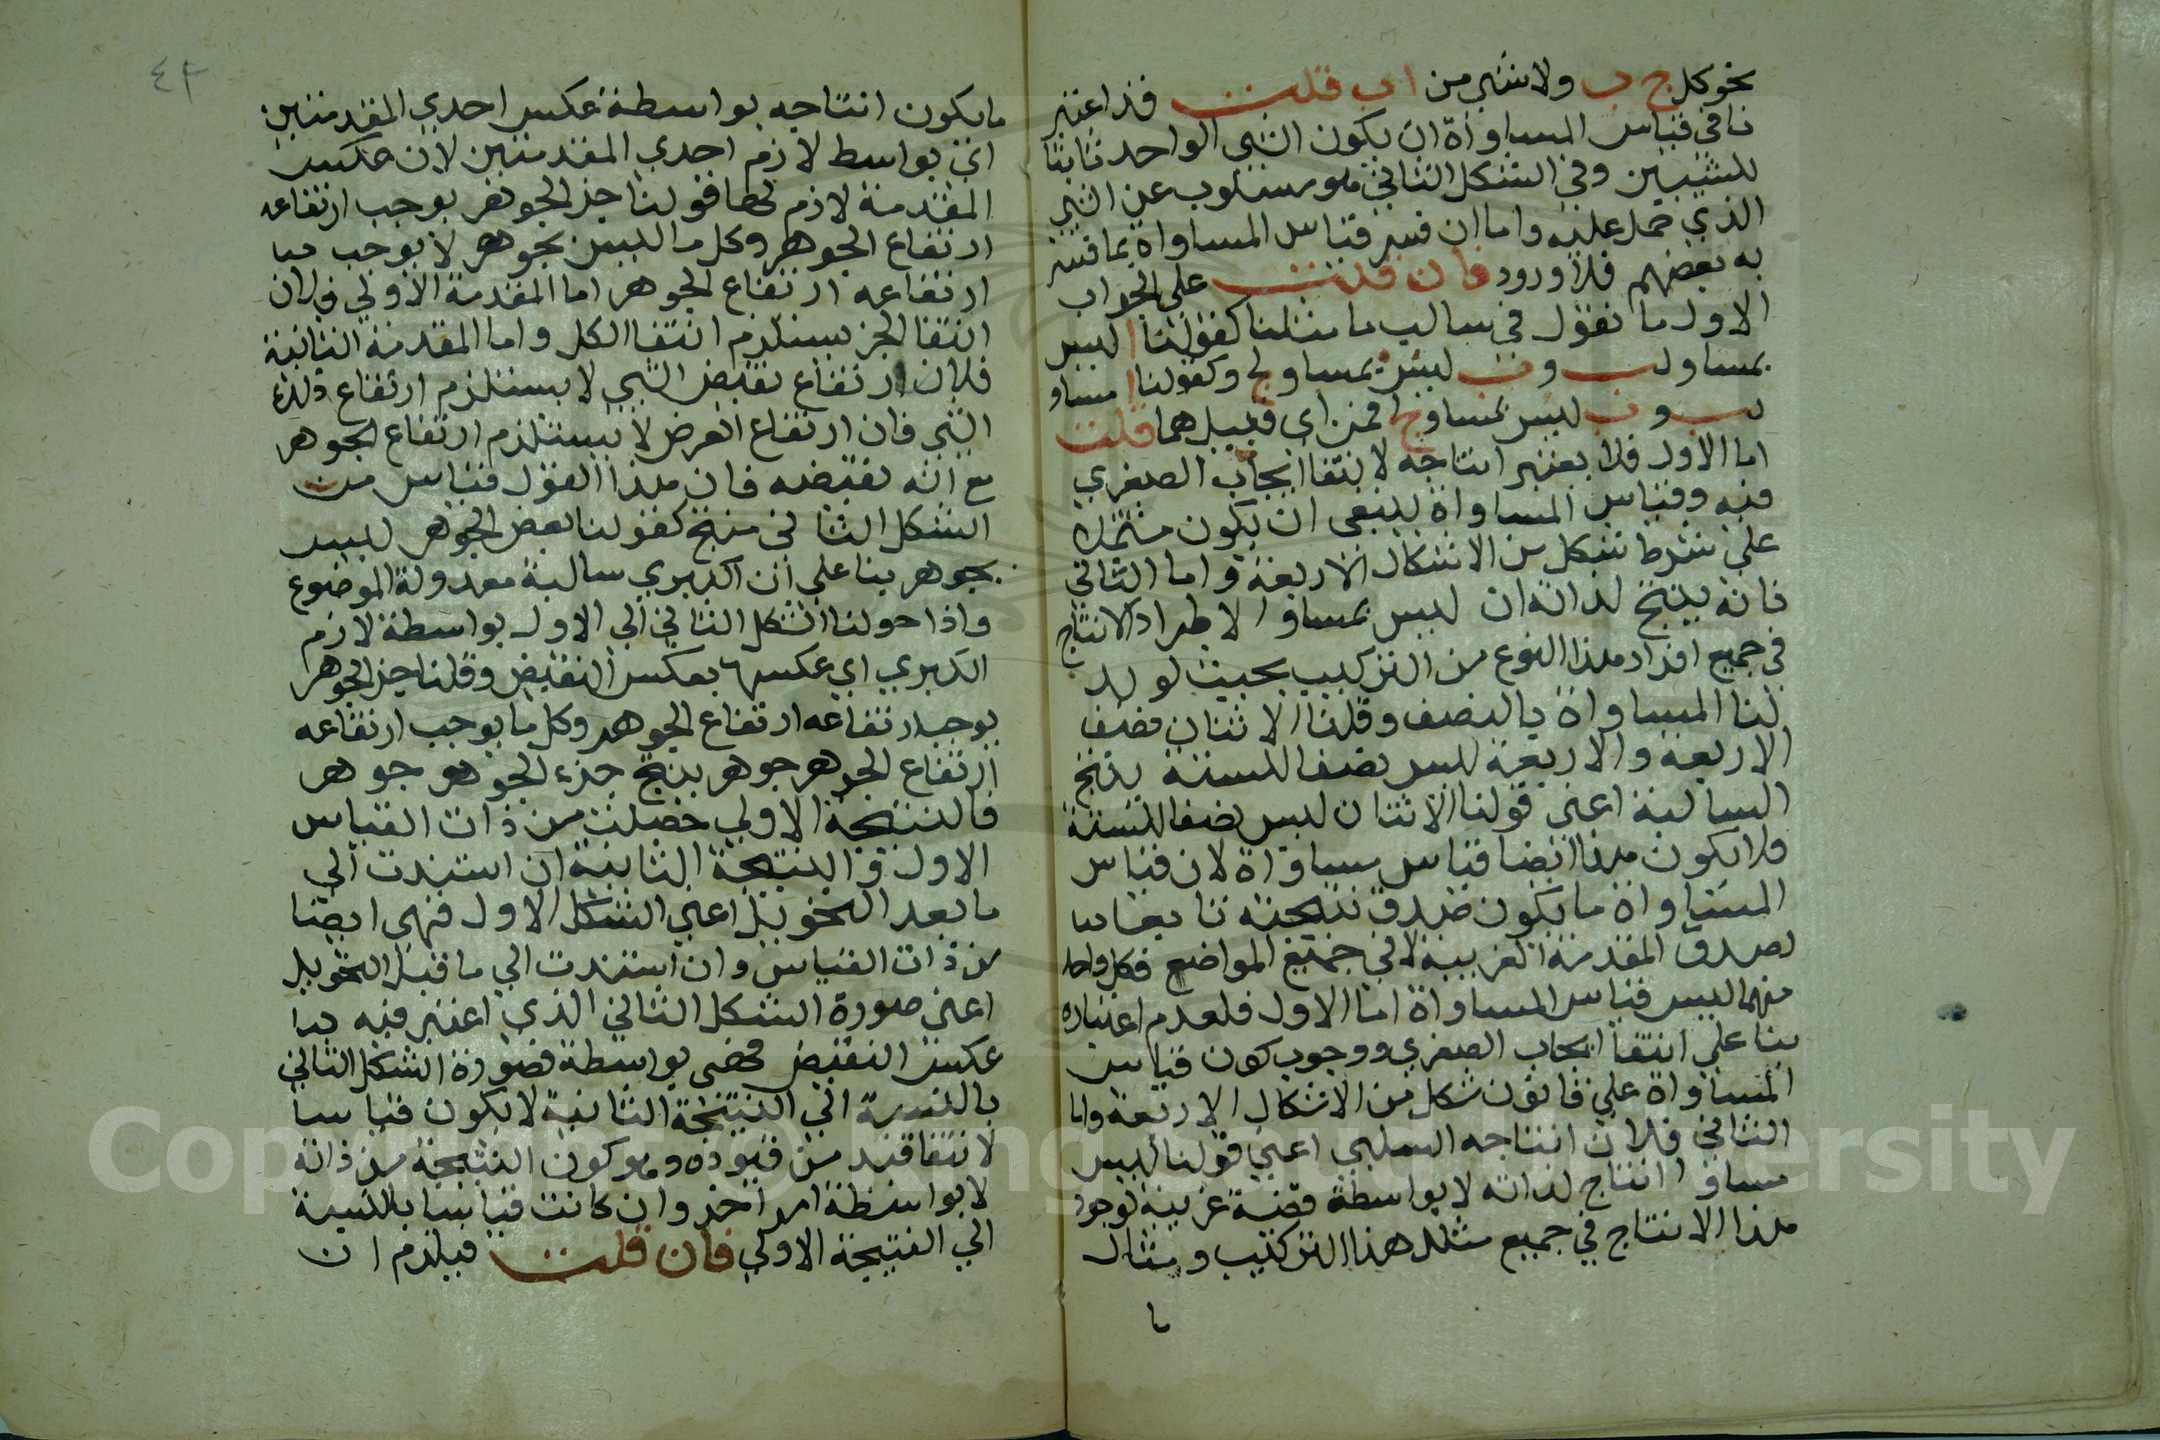 نحو كل ج ب ولا شي من ا ب قلت قد اعتبر
نا في قياس المساواة ان يكون الشي الواحد ثابتا
للشيئين وفي الشكل الثاني هو مسلوب عن الشي
الذي حمل عليه واما ان فسر قياس المساواة بما فسر
به بعضهم فلا ورود فان قلت على الجواب
الاول ما نقول في سالب ما مثلنا كقولنا ا ليس
بمساو لب وب ليس بمساو لج وكقولنا ا مساو
لب وب ليس بمساو لج فمن اي قبيل هما قلت
اما الاول فلا يعتبر انتاجه لانتفا ايجاب الصغري
فيه وقياس المساواة ينبغي ان يكون مشتملا
علي شرط شكل من الاشكال الاربعة واما الثاني
فانه ينتج لذاته ان ليس بمساو لاطراد الانتاج
في جميع افراد هذا النوع من التركيب بحيث لو بد
لنا المساواة بالنصف وقلنا الاثنان نصف
الاربعة والاربعة ليس نصفا للستة ينتج
السالبة اعني قولنا الاثنان ليس نصفا للستة
فلا يكون هذا ايضا قياس مساواة لان قياس
المساواة ما يكون صدق نتيجته تابعا
لصدق المقدمة الغريبة لا في جميع المواضع فكل واحد
منهما ليس قياس المساواة اما الاول فلعدم اعتباره
بنا علي انتفا ايجاب الصغري ووجوب كون قياس
المساواة علي قانون شكل من الاشكال الاربعة واما
الثاني فلان انتاجه السلبي اعني قولنا ليس
مساو انتاج لذاته لا بواسطة قضية غريبة لوجود
هذا الانتاج في جميع مثل هذا التركيب ومثال
ما
٤٢
ما يكون انتاجه بواسطة عكس احدي المقدمتين
اي بواسط لازم احدي المقدمتين لان عكس
المقدمة لازم لها قولنا جز الجوهر يوجب ارتفاعه
ارتفاع الجوهر وكل ما ليس بجوهر لا يوجب
ارتفاعه ارتفاع الجوهر اما المقدمة الاولي فلان
انتفا الجز يستلزم انتفا الكل واما المقدمة الثانية
فلان ارتفاع نقيض الشي لا يستلزم ارتفاع ذلك
الشي فان ارتفاع العرض لا يستلزم ارتفاع الجوهر
مع انه نقيضه فان هذا القول قياس من
الشكل الثاني منتج كقولنا بعض الجوهر ليس
بجوهر بنا علي ان الكبري سالبة معدولة الموضوع
واذا حولنا الشكل الثاني الي الاول بواسطة لازم
الكبري اي عكسها بعكس النقيض وقلنا جز الجوهر
يوجب ارتفاعه ارتفاع الجوهر وكل ما يوجب ارتفاعه
ارتفاع الجوهر جوهر ينتج جزء الجوهر جوهر
فالنتيجة الاولي حصلت من ذات القياس
الاول والنتيجة الثانية ان استندت الي
ما بعد التحويل اعني الشكل الاول فهي ايضا
من ذات القياس وان استندت الي ما قبل التحويل
اعني صورة الشكل الثاني الذي اعتبر فيه
عكس النقيض فهي بواسطة فصورة الشكل الثاني
بالنسبة الي النتيجة الثانية لا يكون قياسا
لانتفا قيد من قيوده وهو كون النتيجة من ذاته
لا بواسطة امر اخر وان كانت قياسا بالنسبة
الي النتيجة الاولي فان قلت فيلزم ان
Copyright © King Saud University